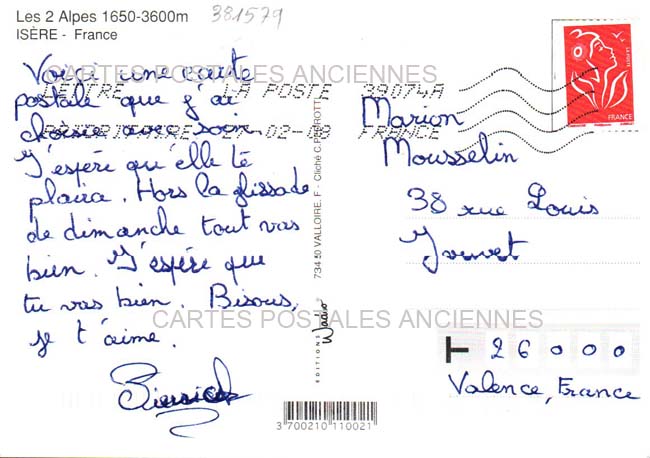 Les 2 Alpes 1650-3600m
ISÈRE - France
381579
Voici une carte
postale que j'ai
choisie avec soin
J'espère qu'elle te
plaira. Hors la glissade
de dimanche tout vas
bien. J'espère que
tu vas bien. Bisous,
je t'aime.
CARTES POSTALES ANCIENNES
LA POSTE 39074A
02-08 FRANCE
LA POSTE
FRANCE
Marion
Mousselin
38 rue Louis
Jouvet
26000
Valence, France
CARTES POSTALES ANCIENNES
EDITIONS
73450 VALLOIRE. F - Cliché C.
3 700210 110021